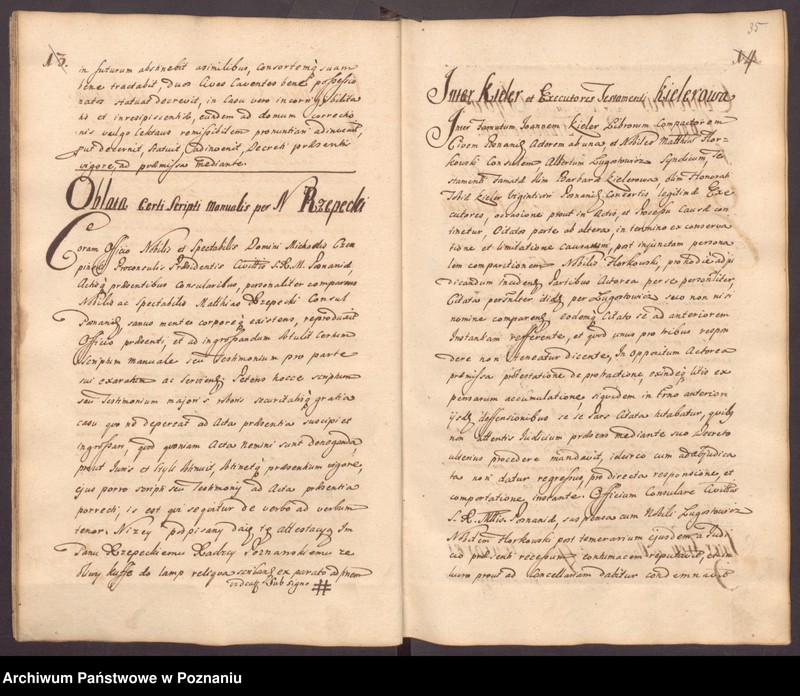 13.
in futurum abstinebit a similibus, Consortemq suam
bene tractabit, duos Cives Caventes bene possessio
natos statuat decrevit, in Casu vero incorrigibilita
tis et irresipiscentiae, eundem ad domum correctio
nis vulgo
pronuntiari adinvenit,
decernit, statuit, adinvenit, Decreti praesentis
vigore, ad praemissa mediante.
Oblata Certi Scripti Manualis per N Rzepecki
Coram Officio Nobilis et Spectabilis Domini Michaelis Czem
Proconsulis Praesidentis Civittis S.R.M. Posnaniae,
Actisq praesentibus Consularibus, personaliter comparens
Nobilis ac Spectabilis Matthias Rzepecki Consul
Posnaniens, sanus mente corporeq existens, reproduxit
Officio praesenti, et ad ingrossandum obtulit Certum
scriptum manuale seu Testimonium pro parte
sui exaratum ac serviens, Petens hocce scriptum
seu Testimonium majoris roboris securitatisq gratia
casu quo ne depereat ad Acta praesentia suscipi et
ingrossari, quod quoniam Acta nemini sunt deneganda,
prout Juris et styli obtinuit, obtinetq praesentium vigore,
ejus porro scripti seu Testimonij ad Acta praesentia
porrecti, is est qui sequitur de verbo ad verbum
tenor. Nizey podpisany daię tę attestacyą Im
Panu Rzepeckiemu Radzcy Poznanskiemu ze
kuffę do lamp reliqua
ex parato ad
sub signo #
35
14
Inter Kieler et Executores Testamenti Kielerowa
Inter Famatum Joannem Kieler Librorum Compactorem
Civem Posnaniens Actorem ab una, et Nobiles Matthias Hor-
kowski Consulem Albertum Zugstowicz Syndicum, Te
stamenti Famatae olim Barbara Kielerowa olim Honorati
Kieler Vigintiviri Posnaniens Consortis legitimae Exe
cutores, occasione prout in Actis, et Processu Causae con
tinetur, Citatos parte ab altera, in termino ex conserva
tione et limitatione causarum, post injunctam persona
lem comparitionem Nobilis Horkowski, pro hodie adju
dicandum incidens, Partibus Actorea per se personliter,
Citata personliter itidem per Zugstowicz suo non nisi
nomine comparens, eodemq Citato se ad anteriorem
Instantiam refferente, et quod unus pro tribus respon
dere non teneatur dicente, In oppositum Actorea
praemissa protestatione de protractione, exindeq litis ex
pensarum accumulatione, siquidem in Trno anteriori
ijsdem deffensionibus se se Pars Citata
quibus
non attentis Judicium praesens mediante suo Decreto
ulterius procedere mandavit, idcirco cum ad adjudica
ta non datur regressus, pro directa responsione, et
comportatione instante. Officium Consulare Civittis
S.R. Mttis Posnaniens, suspensa cum Nobili Zugstowicz
Nobilem Horkowski post temerarium ejusdem a Judi
cio praesenti recessum contumacem reputavit, et in
lucro prout ad Cancellariam dabitur condemnavit
Archiwum Państwowe w Poznaniu